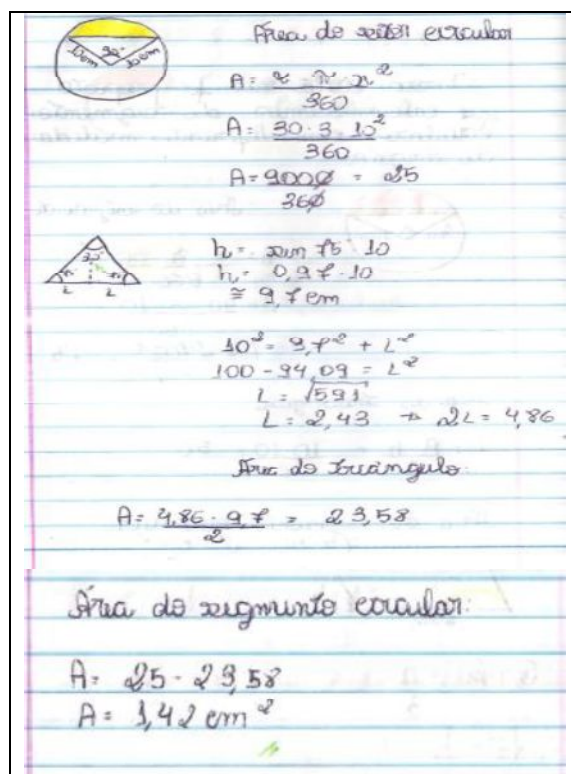 Área do setor circular
10cm 30° 10cm
A = α π r²
360
A = 30 · 3 · 10²
360
A = 9000 = 25
360
30°
L L
h = sen 75 · 10
h = 0,97 · 10
≅ 9,7 cm
10² = 9,7² + L²
100 - 94,09 = L²
L = √591
L = 2,43 → 2L = 4,86
Área do triângulo:
A = 4,86 · 9,7 = 23,58
2
Área do segmento circular:
A = 25 - 23,58
A = 1,42 cm²